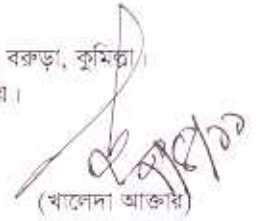 বরুড়া, কুমিল্লা।
য়।
(খালেদা আক্তার)